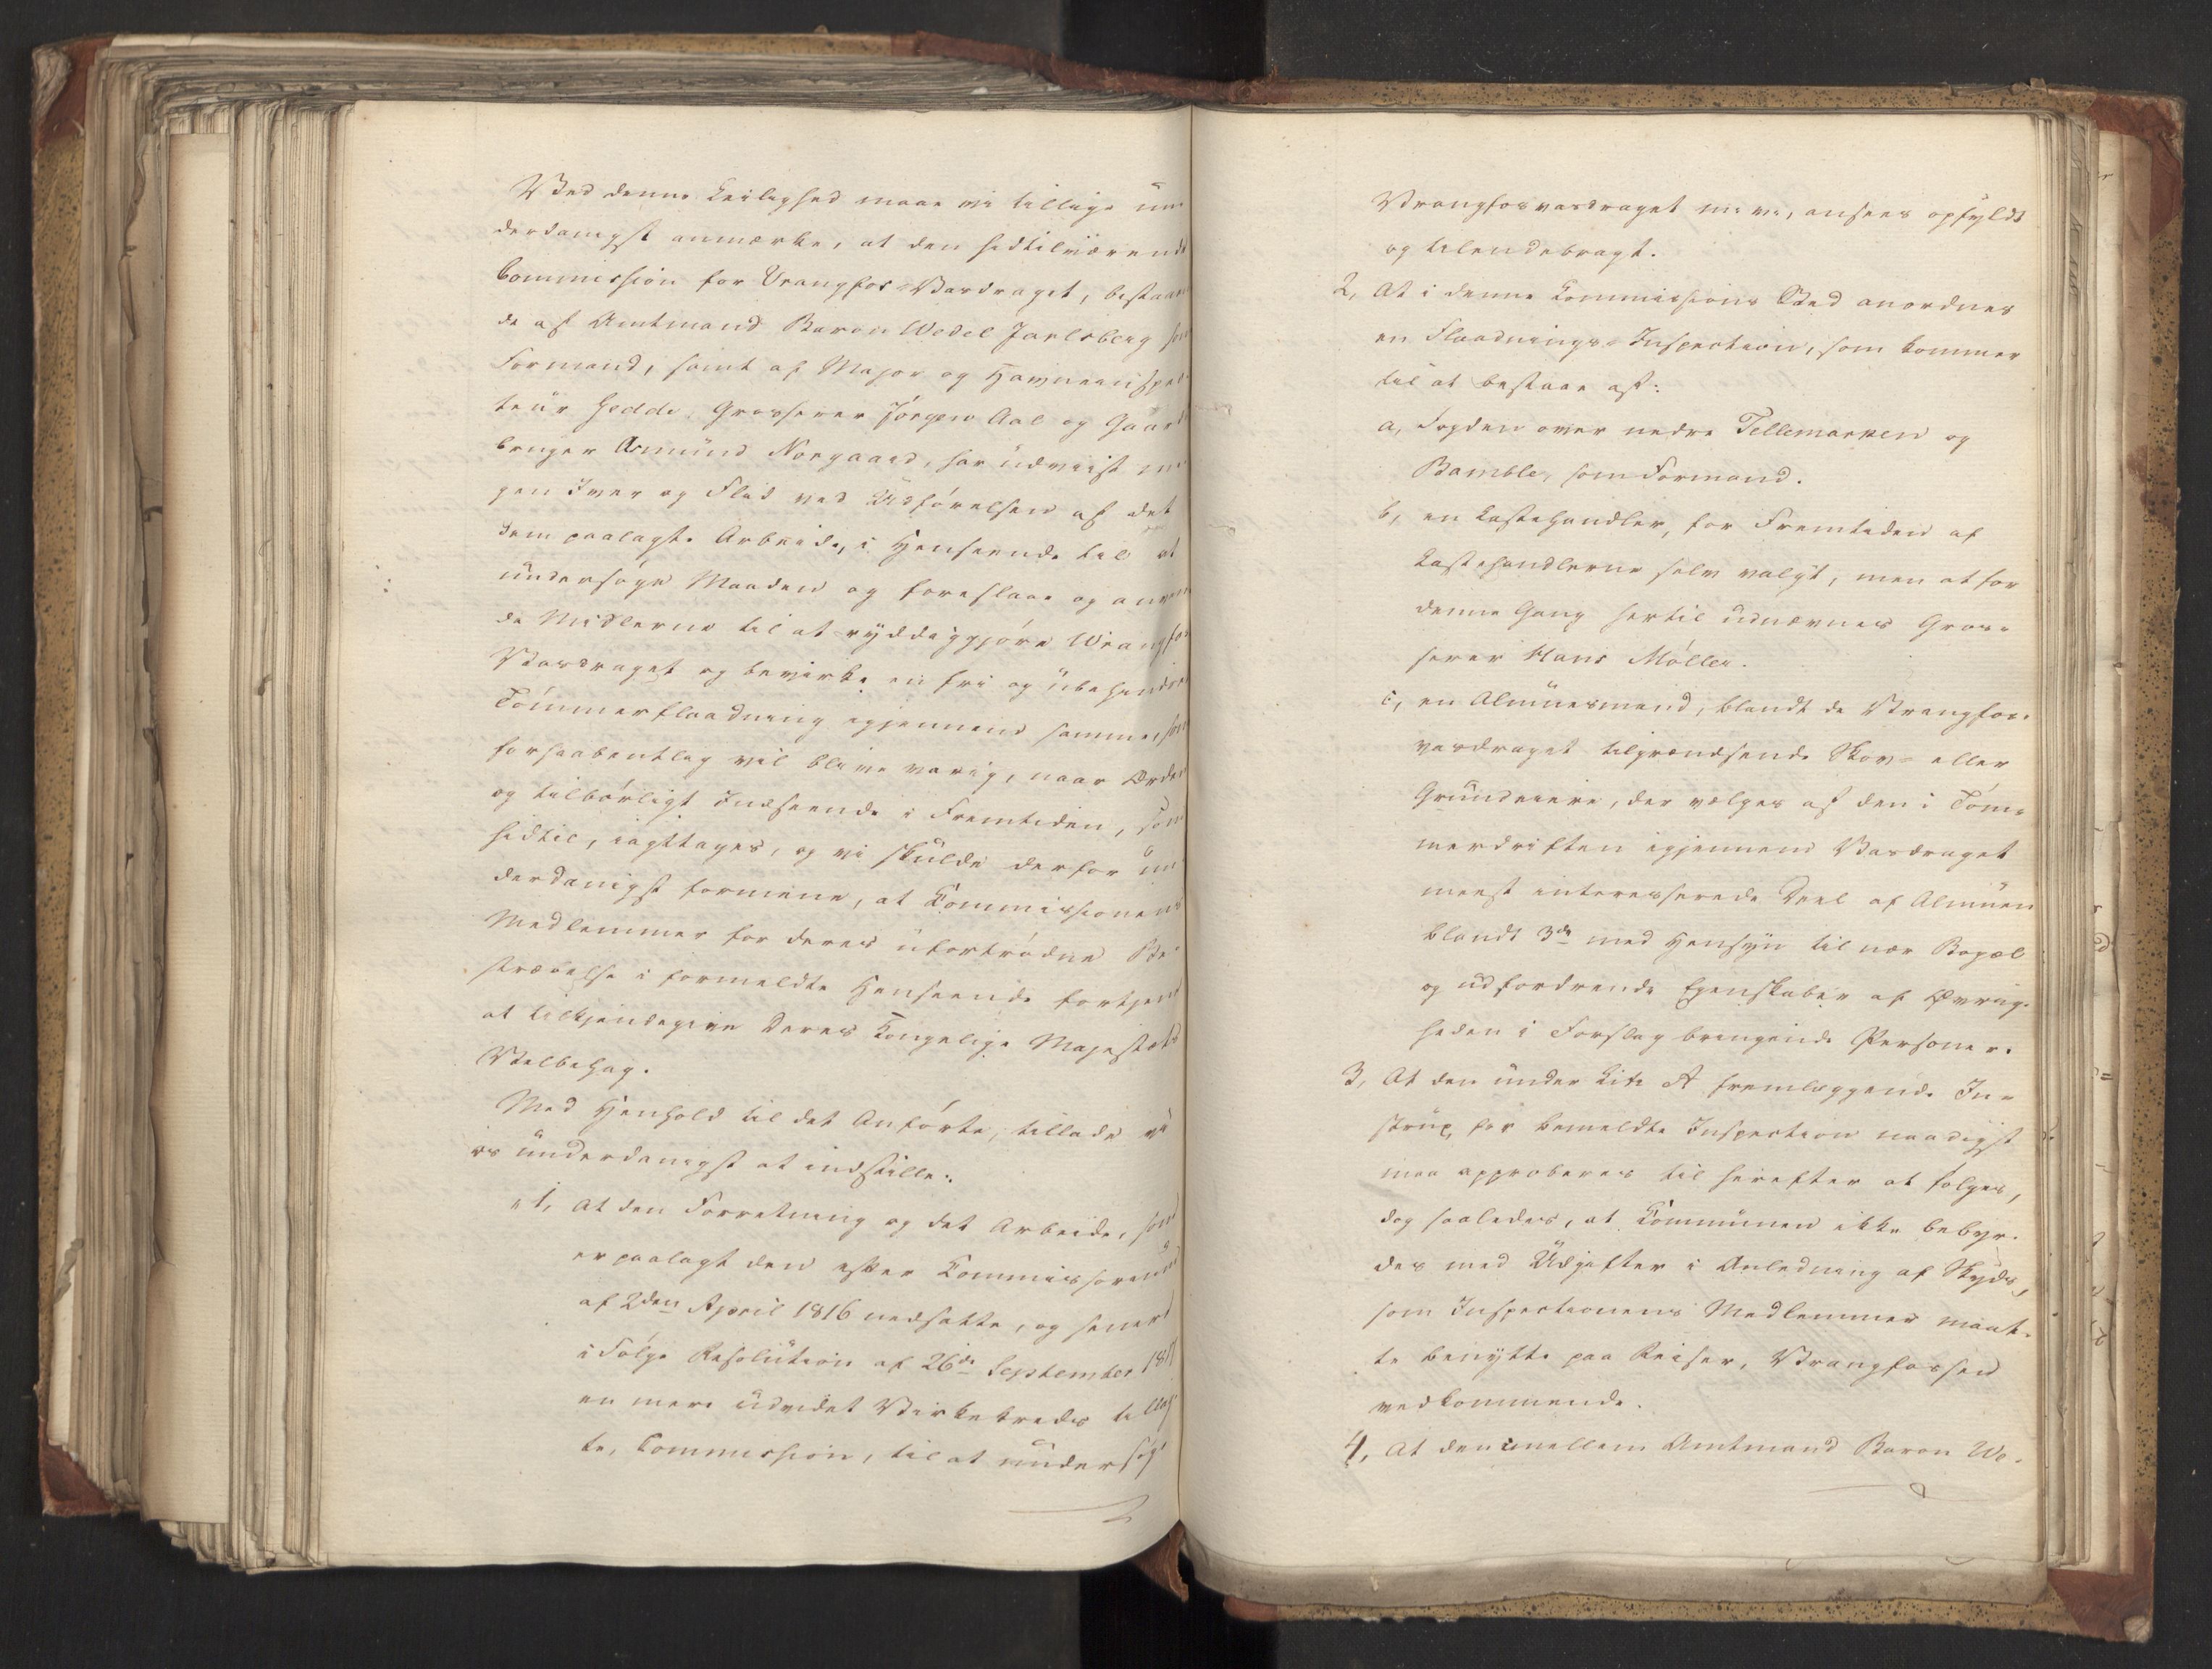 Ved denne Leilighed maae vi tillige un-
derdanigst anmærke, at den hidtilværende
Commission for Vrangfos-Vasdraget, bestaaen-
de af Amtmand Baron Wedel Jarlsberg som
Formand, samt af Major og Havneinspec-
teur Gedde, Grosserer Jørgen Aal og Gaard-
bruger Asmund Norgaard, har udviist me-
gen Iver og Flid ved Udførelsen af det
dem paalagte Arbeide, i Henseende til at
undersøge Maaden og foreslaae og anven-
de Midlerne til at ryddiggjøre Wrangfos-
Vasdraget og bevirke en fri og ubehindret
Tømmerflaadning igjennem samme, som
forhaabentlig vil blive varig, naar Orden
og tilbørligt Indseende i Fremtiden, som
hidtil, iagttages, og vi skulde derfor un-
derdanigst formene, at Commissionens
Medlemmer for deres ufortrødne Be-
stræbelse i formeldte Henseende fortjene
at tilkjendegive Deres Kongelige Majestæts
Velbehag.
Med Henhold til det Anførte, tillade vi
os underdanigst at indstille:
"1, At den Forretning og det Arbeide, som
er paalagt den efter Commissorium
af 2den April 1816 nedsatte, og senere
i Følge Resolution af 26de September 181
en mere udvidet Virkekreds tillag-
te, Commission, til at undersøge
Vrangfosvasdraget m: v:, ansees opfyldt
og tilendebragt.
2, At i denne Commissions Sted anordnes
en Flaadnings-Inspection, som kommer
til at bestaae af:
a, Fogden over nedre Tellemarken og
Bamble, som Formand.
b, en Lasthandler, for Fremtiden af
Lasthandlerne selv valgt, men at for
denne Gang hertil udnævnes Gros-
serer Hans Møller.
c, en Almuesmand, blandt de Vrangfos-
vasdraget tilgrændsende Skov- eller
Grundeiere, der vælges af den i Tøm-
merdriften igjennem Vasdraget
meest interesserede Deel af Almuen
blandt 3de med Hensyn til nær Bopæl
og udfordrende Egenskaber af Øvrig-
heden i Forslag bringende Personer.
3, At den under Litr A fremlæggende In-
strux for bemeldte Inspection naadigst
maa approberes til herefter at følges,
dog saaledes, at Communen ikke bebyr-
des med Udgifter i Anledning af Skyds,
som Inspectionens Medlemmer maat-
te benytte paa Reiser, Vrangfossen
vedkommende.
4, At den imellem Amtmand Baron We-